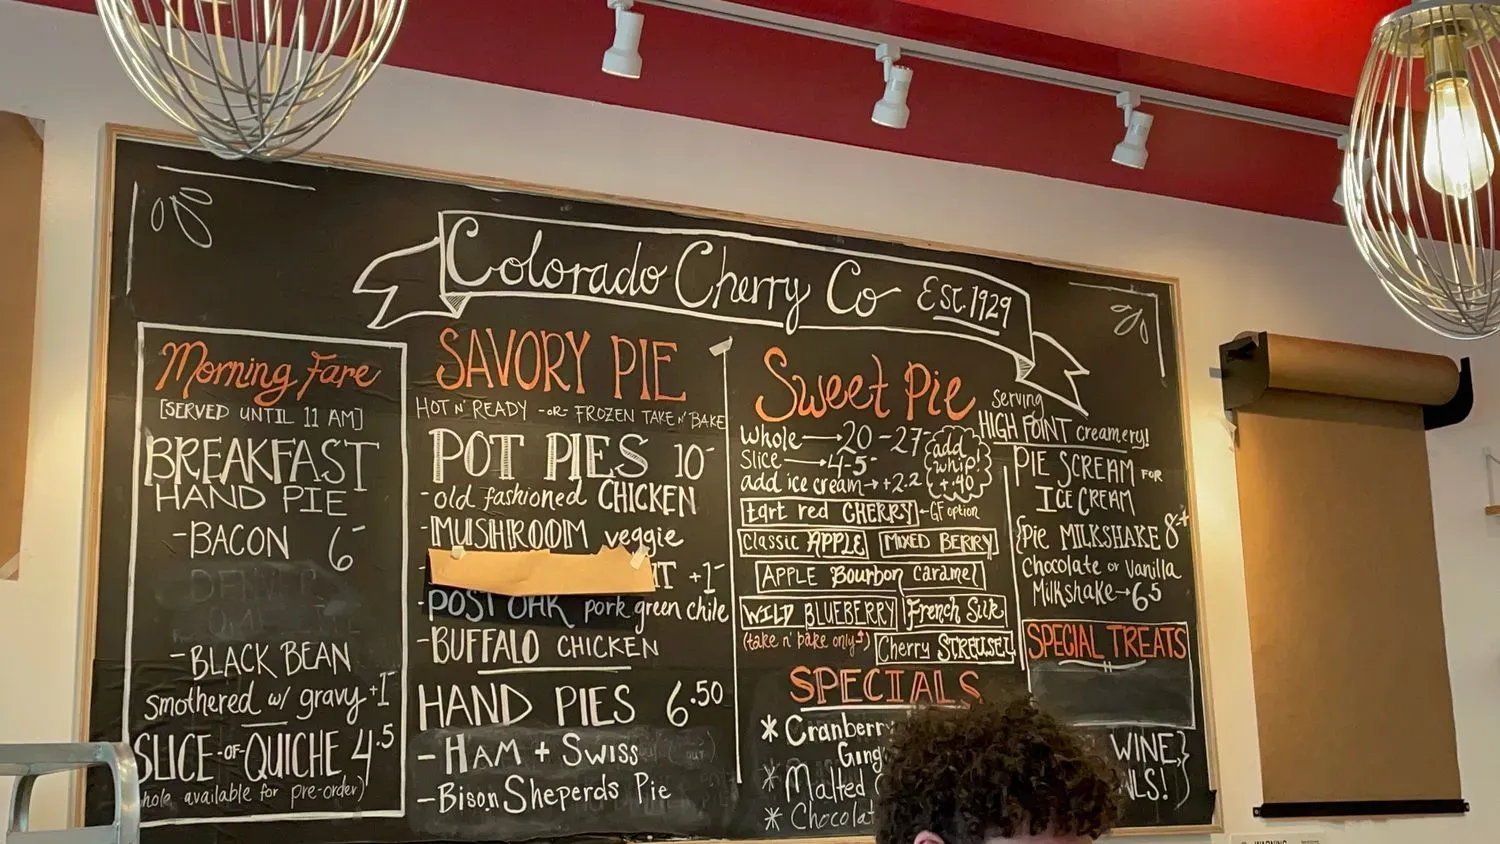 Colorado Cherry Co Est. 1929
Morning Fare
[SERVED UNTIL 11 AM]
BREAKFAST
HAND PIE
-BACON 6-
-BLACK BEAN
smothered w/ gravy +1-
SLICE -OF- QUICHE 4.5
available for pre-order)
SAVORY PIE
HOT N' READY -OR- FROZEN TAKE N' BAKE
POT PIES 10-
-old fashioned CHICKEN
-MUSHROOM veggie
+1-
-POST OAK pork green chile
-BUFFALO CHICKEN
HAND PIES 6.50
-HAM + SWISS
-Bison Sheperds Pie
Sweet Pie
Whole→20-27-
Slice→4-5-
add ice cream→+2.2
add
whip!
+.40
tart red CHERRY ←GF option
Classic APPLE MIXED BERRY
APPLE Bourbon Caramel
WILD BLUEBERRY French Silk
(take n' bake only) Cherry STREUSEL
SPECIALS
* Cranberry
* Malted
Serving
HIGH POINT creamery!
PIE SCREAM FOR
ICE CREAM
Pie MILKSHAKE 8-+
Chocolate or Vanilla
Milkshake→6.5
SPECIAL TREATS
WINE,